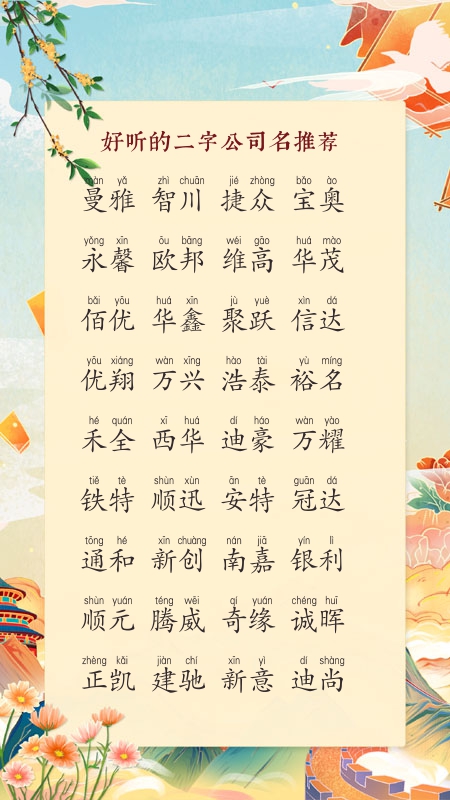 好听的二字公司名推荐
màn yǎ zhì chuān jié zhòng bǎo ào
曼雅 智川 捷众 宝奥
yǒng xīn ōu bāng wéi gāo huá mào
永馨 欧邦 维高 华茂
bǎi yōu huá xīn jù yuè xìn dá
佰优 华鑫 聚跃 信达
yōu xiáng wàn xīng hào tài yù míng
优翔 万兴 浩泰 裕名
hé quán xī huá dí háo wàn yào
禾全 西华 迪豪 万耀
tiě tè shùn xùn ān tè guān dá
铁特 顺迅 安特 冠达
tōng hé xīn chuàng nán jiā yín lì
通和 新创 南嘉 银利
shùn yuán téng wēi qí yuán chéng huī
顺元 腾威 奇缘 诚晖
zhèng kǎi jiàn chí xīn yì dí shàng
正凯 建驰 新意 迪尚